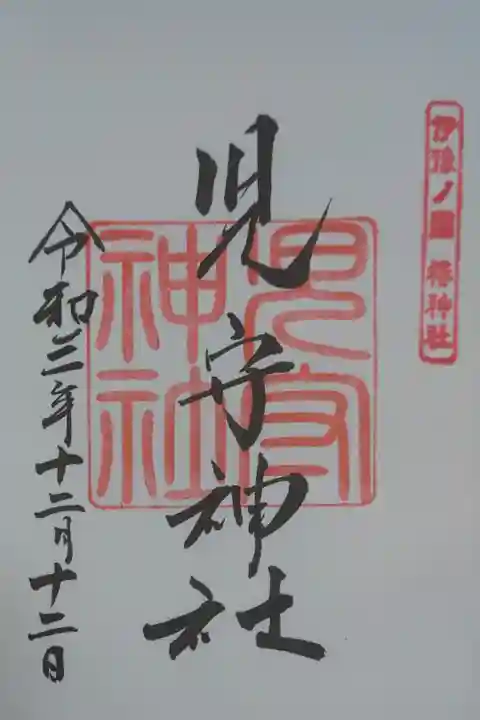 伊豫ノ國 椿神社
児守神社
児守神社
令和三年十二月十二日